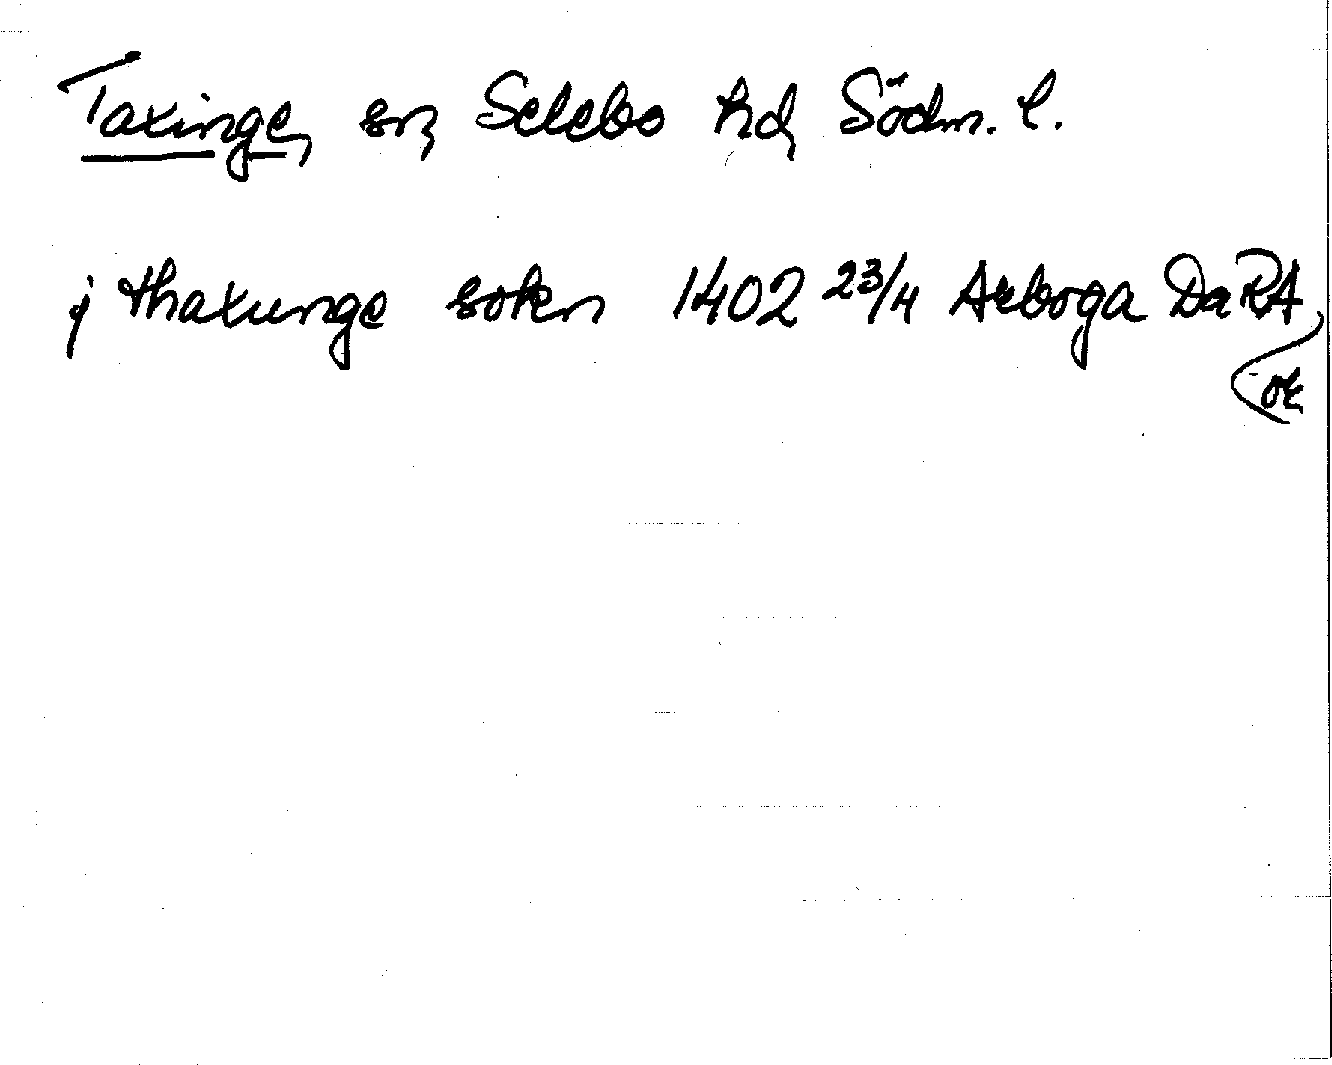 Taxinge, sn, Selebo hd, Södm. l.
j thaxunge sokn 1402 23/4 Arboga Da RA,
or